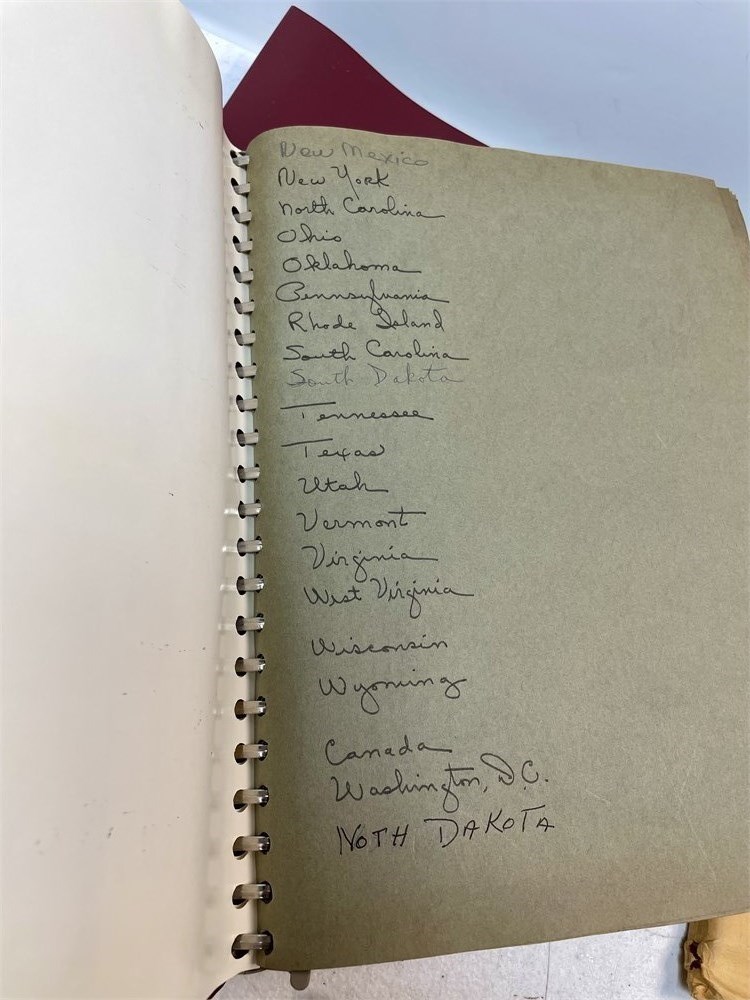 New Mexico
New York
North Carolina
Ohio
Oklahoma
Pennsylvania
Rhode Island
South Carolina
South Dakota
Tennessee
Texas
Utah
Vermont
Virginia
West Virginia
Wisconsin
Wyoming
Canada
Washington, D.C.
NOTH DAKOTA